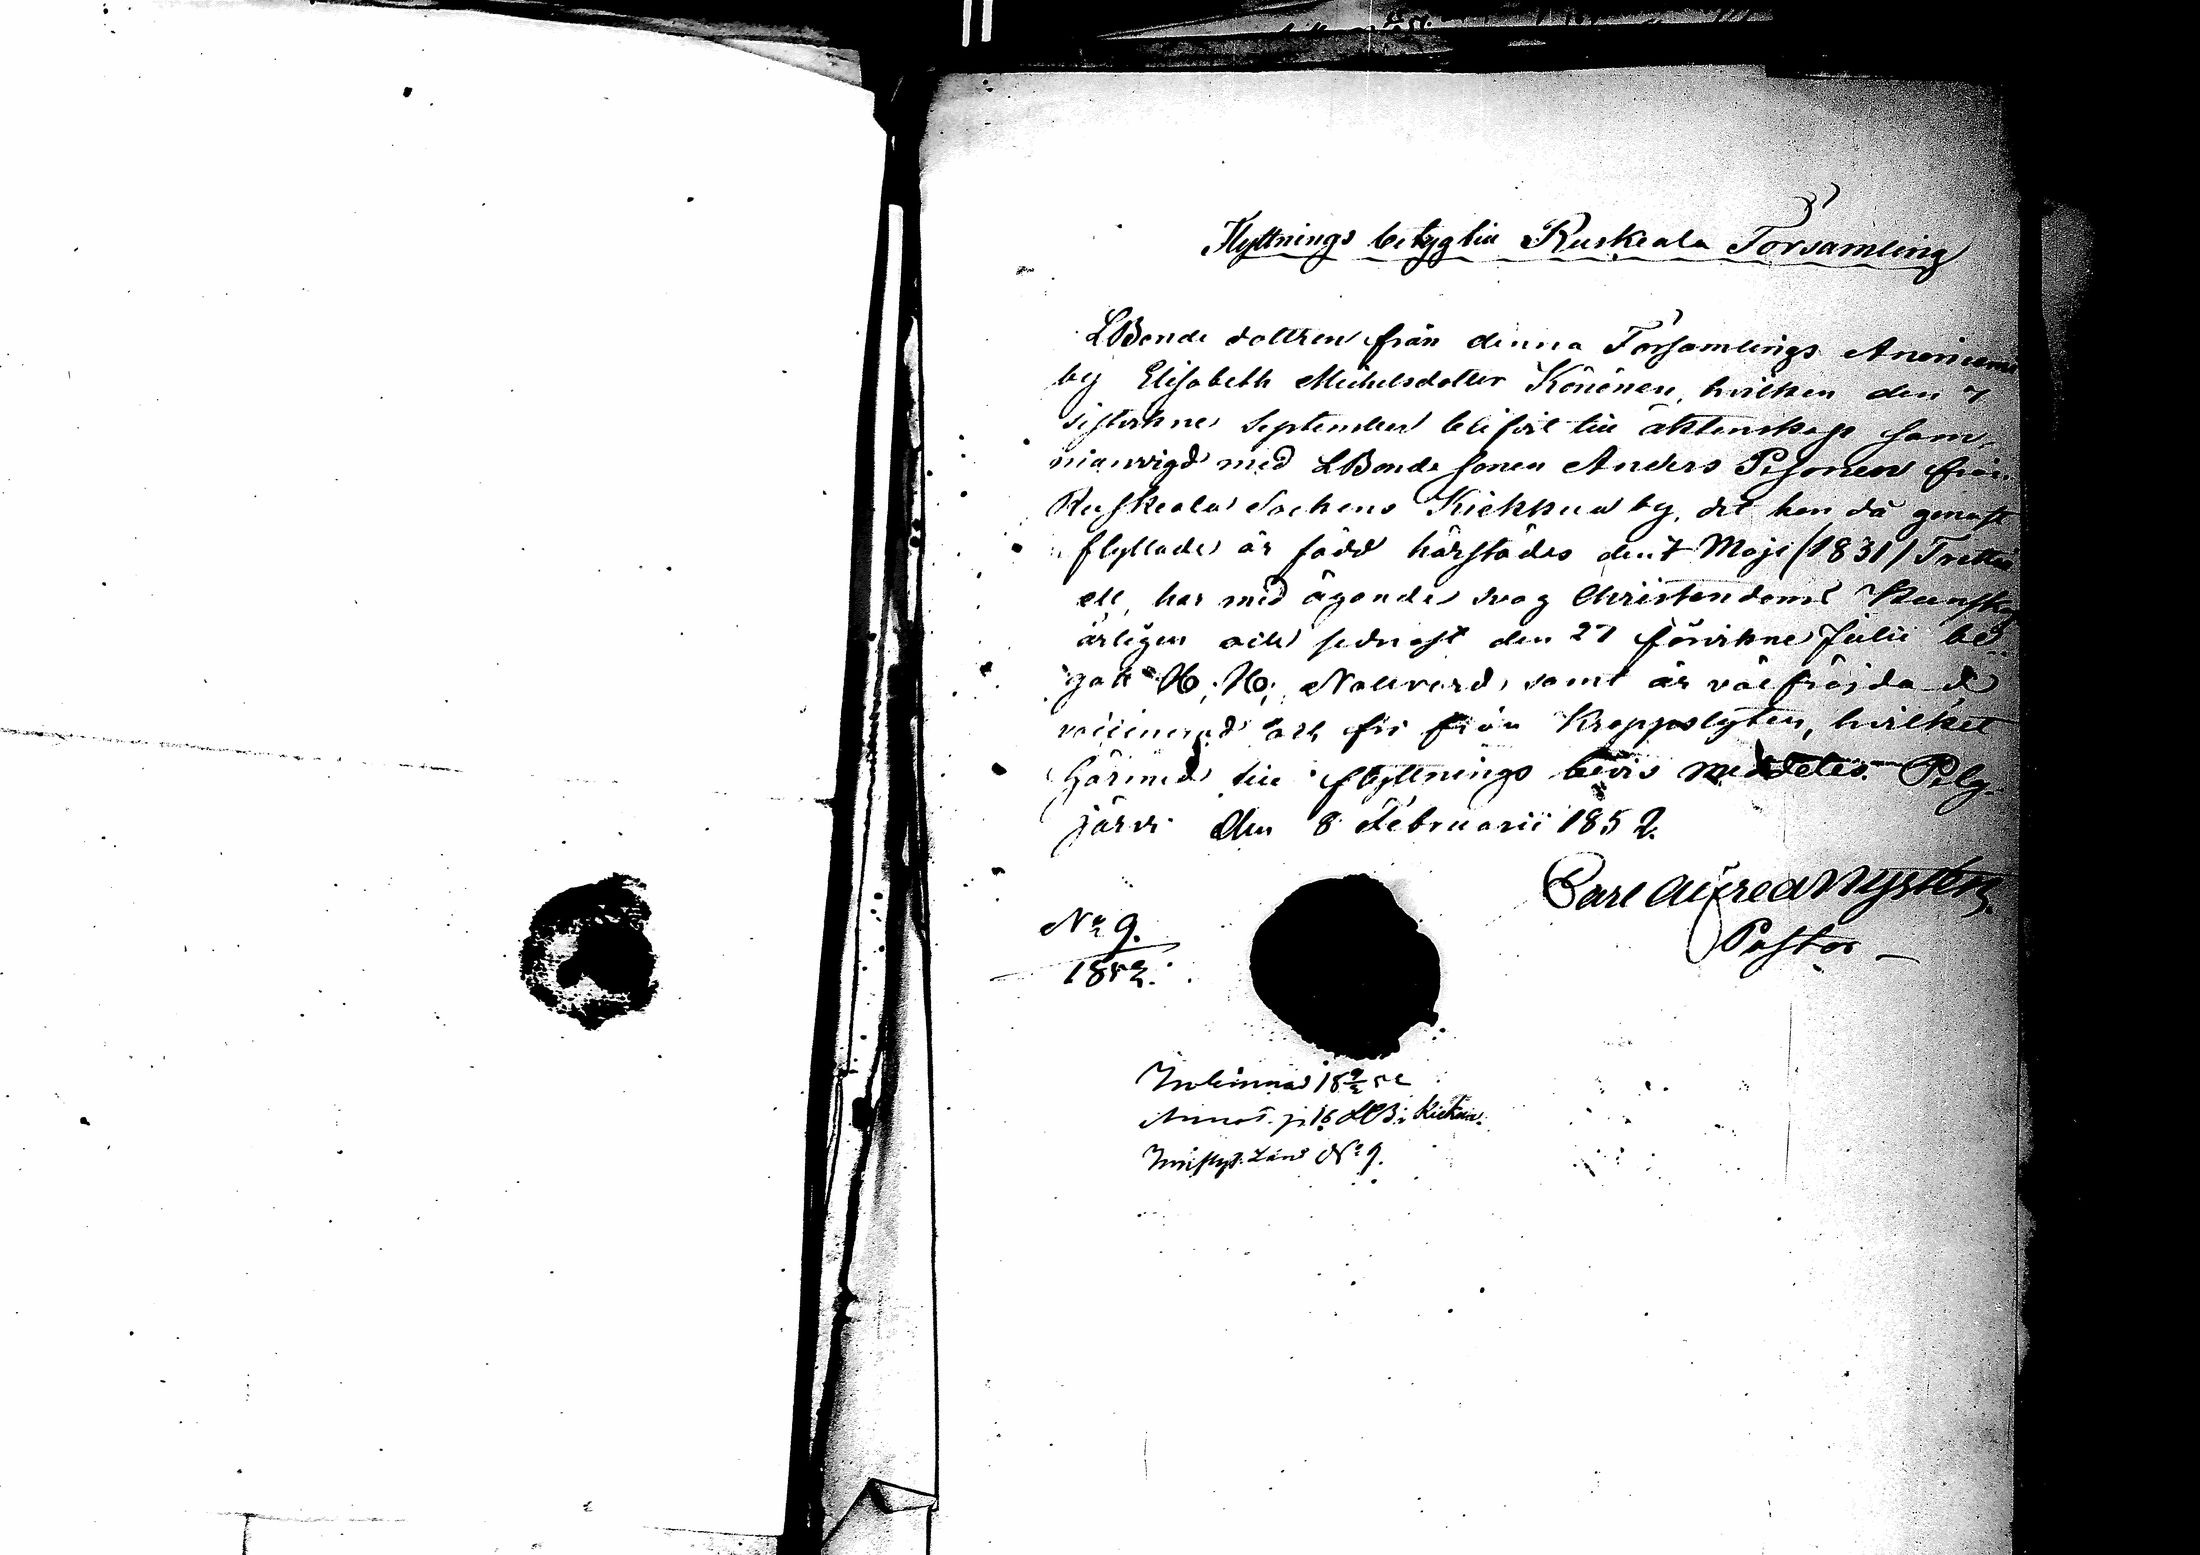 Flyttnings betyg till Ruskeala Församling
LBonde dottren från denna Församlings
by Elisabeth Michelsdotter Könönen, hvilken den 7
sistvikne September blifvit till äktenskap sam-
manvigd med LBonde sonen Anders Pesonen från
Ruskeala Sockens Kiekkua by, dit hon då genast
flyttade är född härstädes den 7 Maji (1831) Trettio
ett, har med ägande svag Christendoms Kunskap
ärligen och sednast den 27 förvikne Julii be-
gått H. H. Nattvard, samt är välfräjdad
vaccinerad och fri från Kroppslyten, hvilket
härmed till flyttnings bevis meddeles. Pelg-
järvi den 8 Februarii 1852.
Carl Alfred Nystén
Pastor
No 9.
1852.
Inlemnad 18 9/2 52
Annot. p. 16 LB. Kiekua.
Inflytt. Läng No 9.